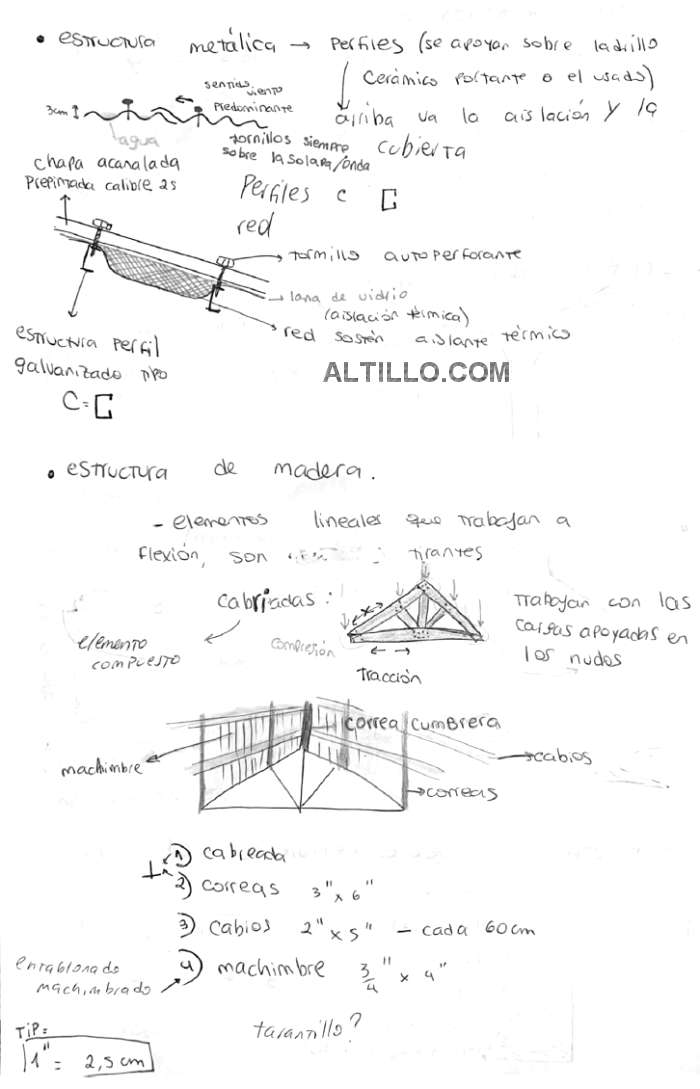 • estructura metálica → Perfiles (se apoyan sobre ladrillo
cerámico portante o el usado)
arriba va la aislación y la
cubierta
sentido viento
Predominante
3cm
agua
tornillos siempre
sobre la solapa/onda
chapa acanalada
Prepimada calibre 25
Perfiles C [
red
tornillo autoperforante
lana de vidrio
(aislación térmica)
red sostén aislante térmico
estructura perfil
galvanizado tipo
C = [
ALTILLO.COM
• estructura de madera.
- elementos lineales que trabajan a
flexión, son : tirantes
cabriadas :
elemento
compuesto
compresión
Tracción
Trabajan con las
cargas apoyadas en
los nudos
correa cumbrera
machimbre
cabios
correas
1) cabreada
2) correas 3" x 6"
3) cabios 2" x 5" - cada 60cm
4) machimbre 3/4" x 4"
entablonado
machimbrado
tarantillo?
TIP:
1" = 2,5 cm